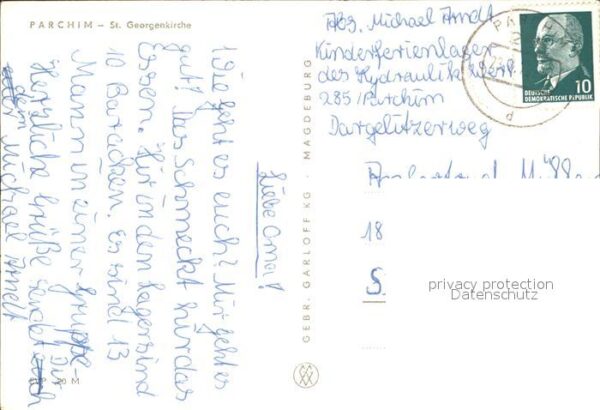 PARCHIM – St. Georgenkirche
Liebe Oma!
Wie geht es euch? Mir geht es
gut! Das schmeckt nur das
Essen. Hir in den Lager sind
10 Baracken. Es sind 13
Mann in einer Gruppe.
Herzliche Grüße sendet
Michael Arndt
GEBR. GARLOFF KG · MAGDEBURG
Abs. Michael Arndt
Kinderferienlager
des Hydraulikwerk
285 Parchim
Dargelützerweg
18
S
DEUTSCHE
DEMOKRATISCHE REPUBLIK
10
privacy protection
Datenschutz